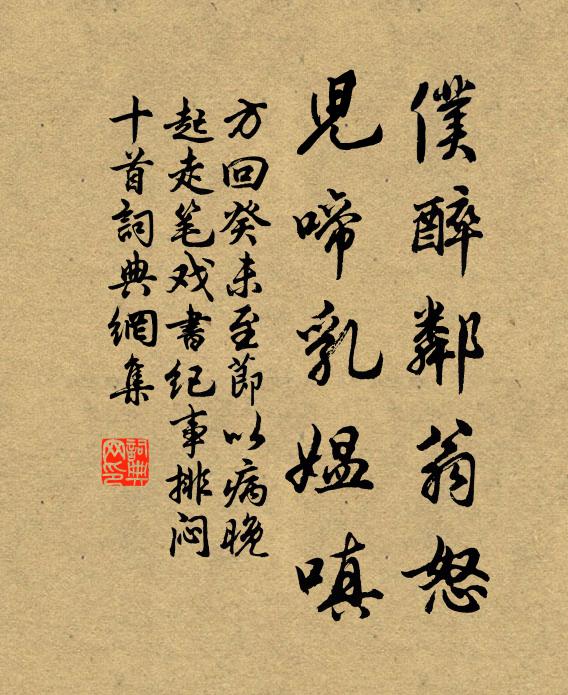 僕醉鄰翁怒
兒啼乳媼嗔
方回癸未至節以病晚
起走笔戏書纪事排闷
十首詞典網集
詞典
网印